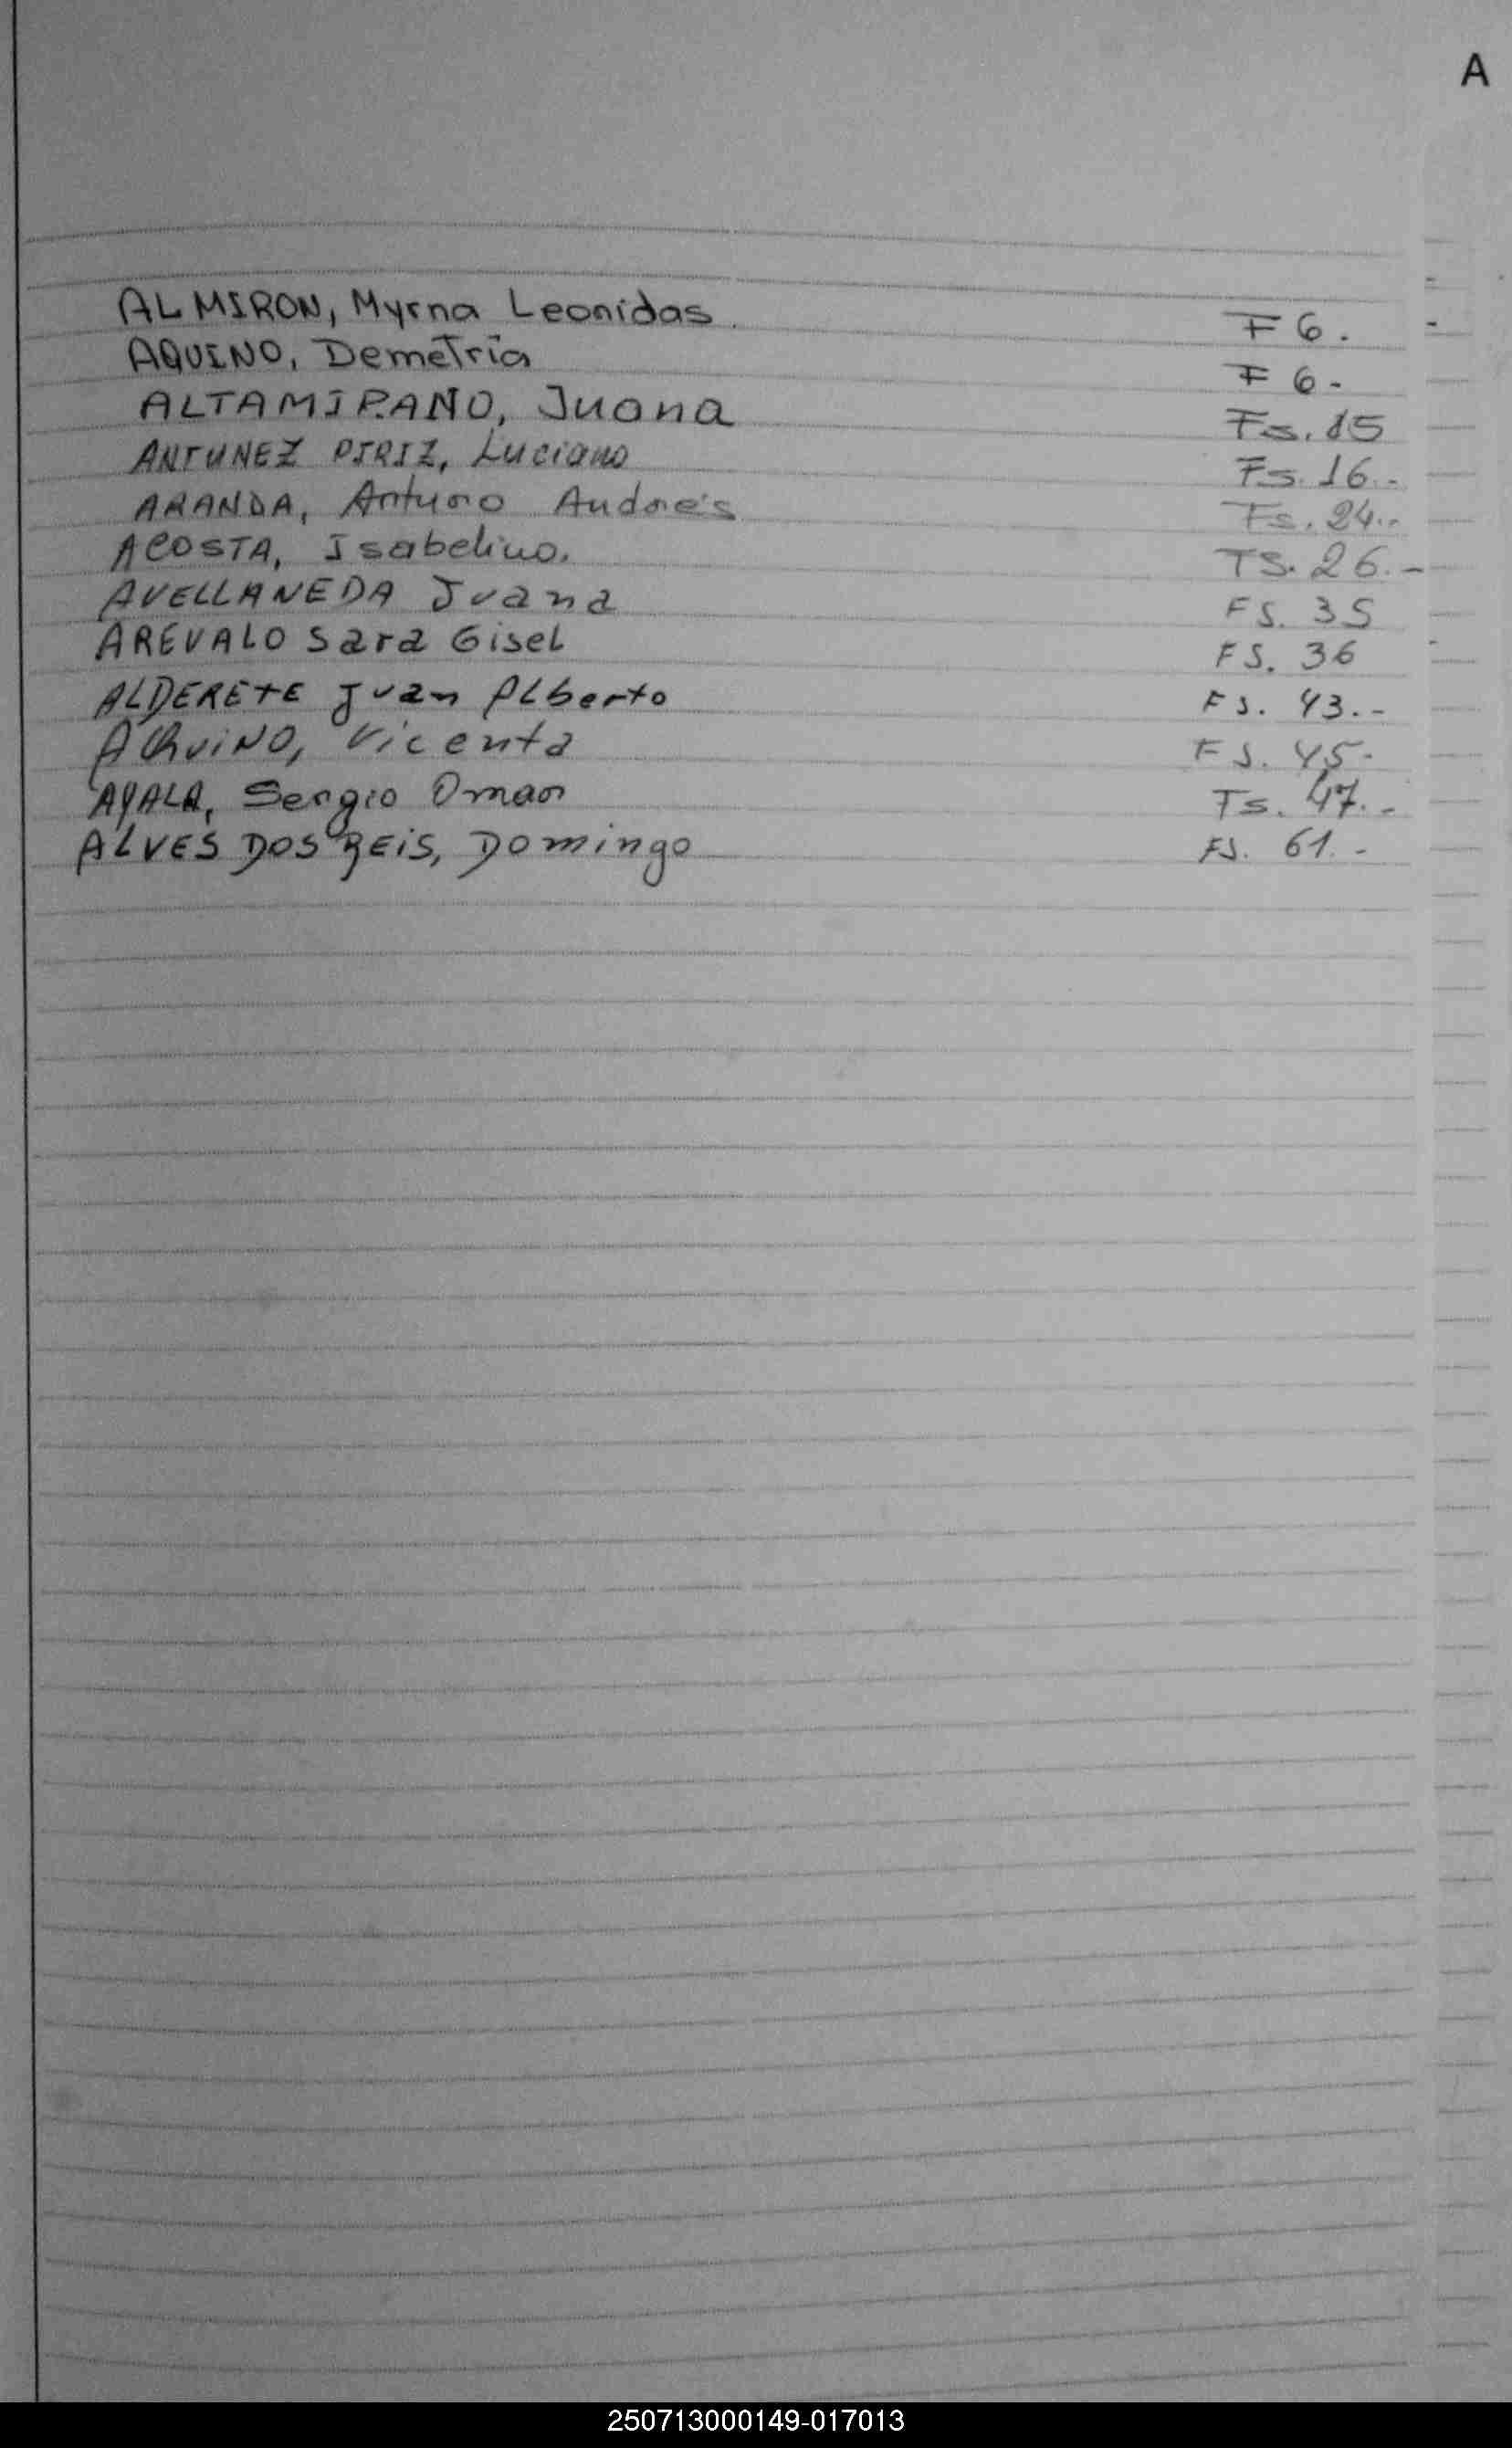 A
ALMIRON, Myrna Leonidas. F 6.
AQUINO, Demetria F 6.-
ALTAMIRANO, Juana Fs. 15
ANTUNEZ PIRIZ, Luciano Fs. 16.-
ARANDA, Arturo Andrés Fs. 24.-
ACOSTA, Isabelino. Fs. 26.-
AVELLANEDA Juana FS. 35
AREVALO Sara Gisel FS. 36
ALDERETE Juan Alberto FS. 43.-
AQuiNO, Vicenta FS. 45-
AYALA, Sergio Omar Fs. 47.-
ALVES DOS REiS, Domingo FS. 61.-
250713000149-017013